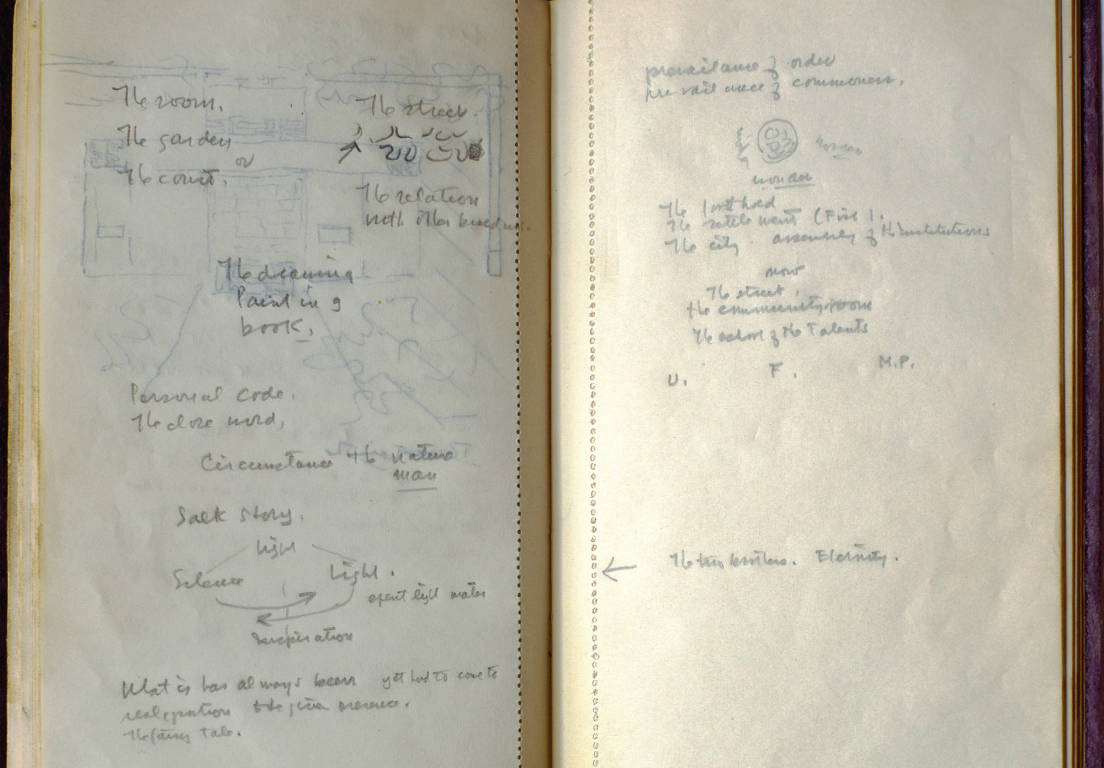 The room.
The garden
or
The court.
The street.
The relation
with other buildings.
The drawing
Painting
book.
Personal code.
The close word,
Circumstance the nature
man
Salk story.
light
Silence
Light.
spent light matter
Inspiration
What is has always been yet had to come to
realization to be given presence.
The fairy tale.
prevailance of order
prevailance of commonness.
wonder
The
The settlement (First).
The city assembly of the institutions
now
The street,
the community room
The school of the Talents
U. F. M.P.
The two brothers. Eternity.